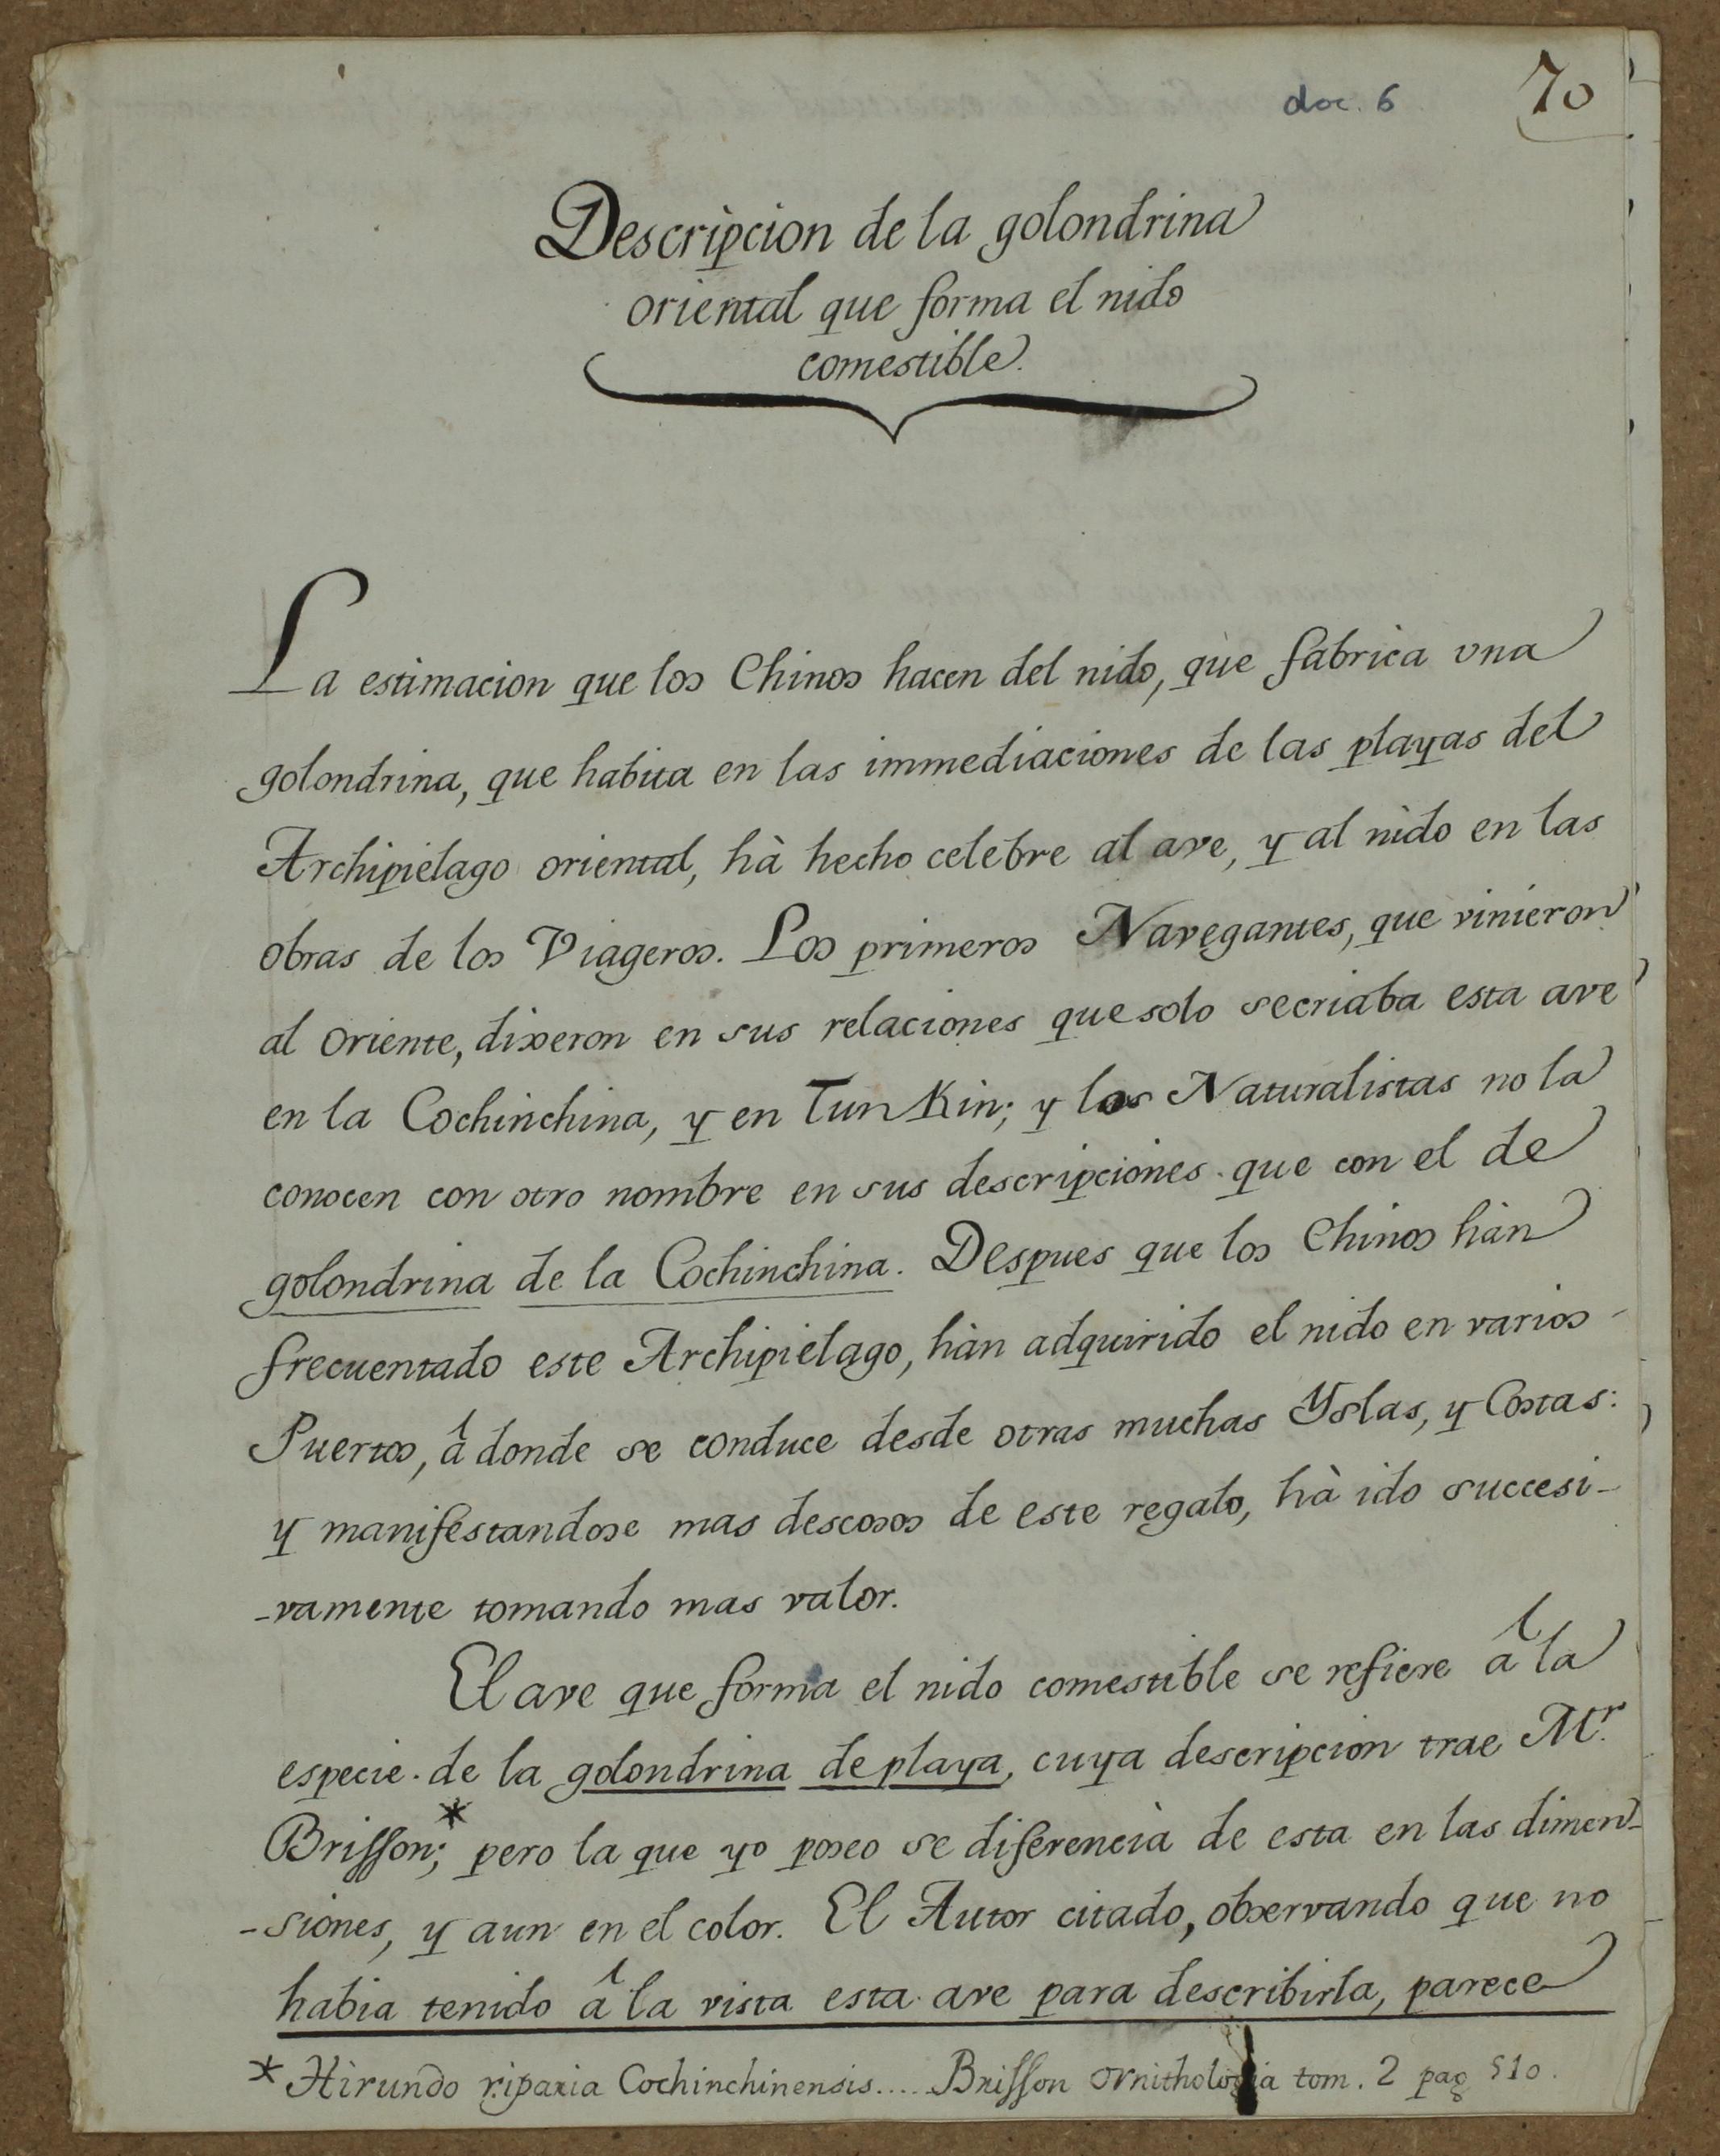 doc. 6
70
Descripcion de la golondrina
oriental que forma el nido
comestible.
La estimacion que los Chinos hacen del nido, que fabrica vna
golondrina, que habita en las immediaciones de las playas del
Archipiélago oriental, hà hecho celebre al ave, y al nido en las
obras de los Viageros. Los primeros Navegantes, que vinieron
al oriente, dixeron en sus relaciones que solo se criaba esta ave
en la Cochinchina, y en TunKin; y los Naturalistas no la
conocen con otro nombre en sus descripciones que con el de
golondrina de la Cochinchina. Despues que los Chinos hàn
frecuentado este Archipiélago, hàn adquirido el nido en varios
Puertos, â donde se conduce desde otras muchas Yslas, y Costas:
y manifestandose mas deseosos de este regalo, hà ido succesi-
-vamente tomando mas valor.
El ave que forma el nido comestible se refiere â la
especie de la golondrina de playa, cuya descripcion trae Mr.
Brisson;* pero la que yo poseo se diferencia de esta en las dimen-
-siones, y aun en el color. El Autor citado, observando que no
habia tenido â la vista esta ave para describirla, parece
* Hirundo riparia Cochinchinensis.... Brisson ornithologia tom. 2 pag 510.